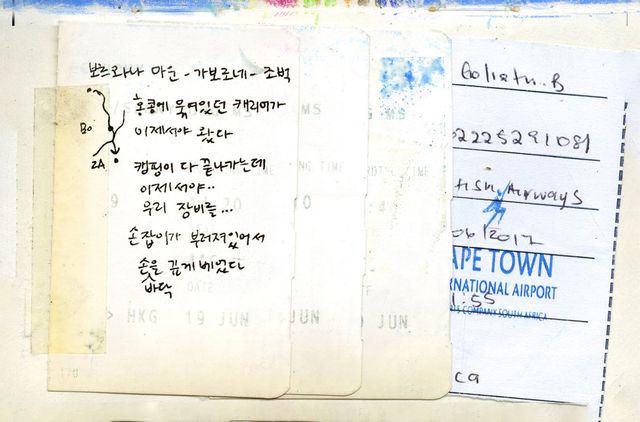 보츠와나 마운 - 가보로네 - 조벅
홍콩에 묶여있던 캐리어가
이제서야 왔다
Bo
ZA
캠핑이 다 끝나가는데
이제서야..
우리 장비들...
손잡이가 부러져있어서
손을 깊게 베었다
바닥
MS
MS
TIME
DATE
> HKG 19 JUN
JUN
JUN
Goliath.B
02225291081
Airways
06/2017
APE TOWN
RNATIONAL AIRPORT
TS COMPANY SOUTH AFRICA
1:55
ca